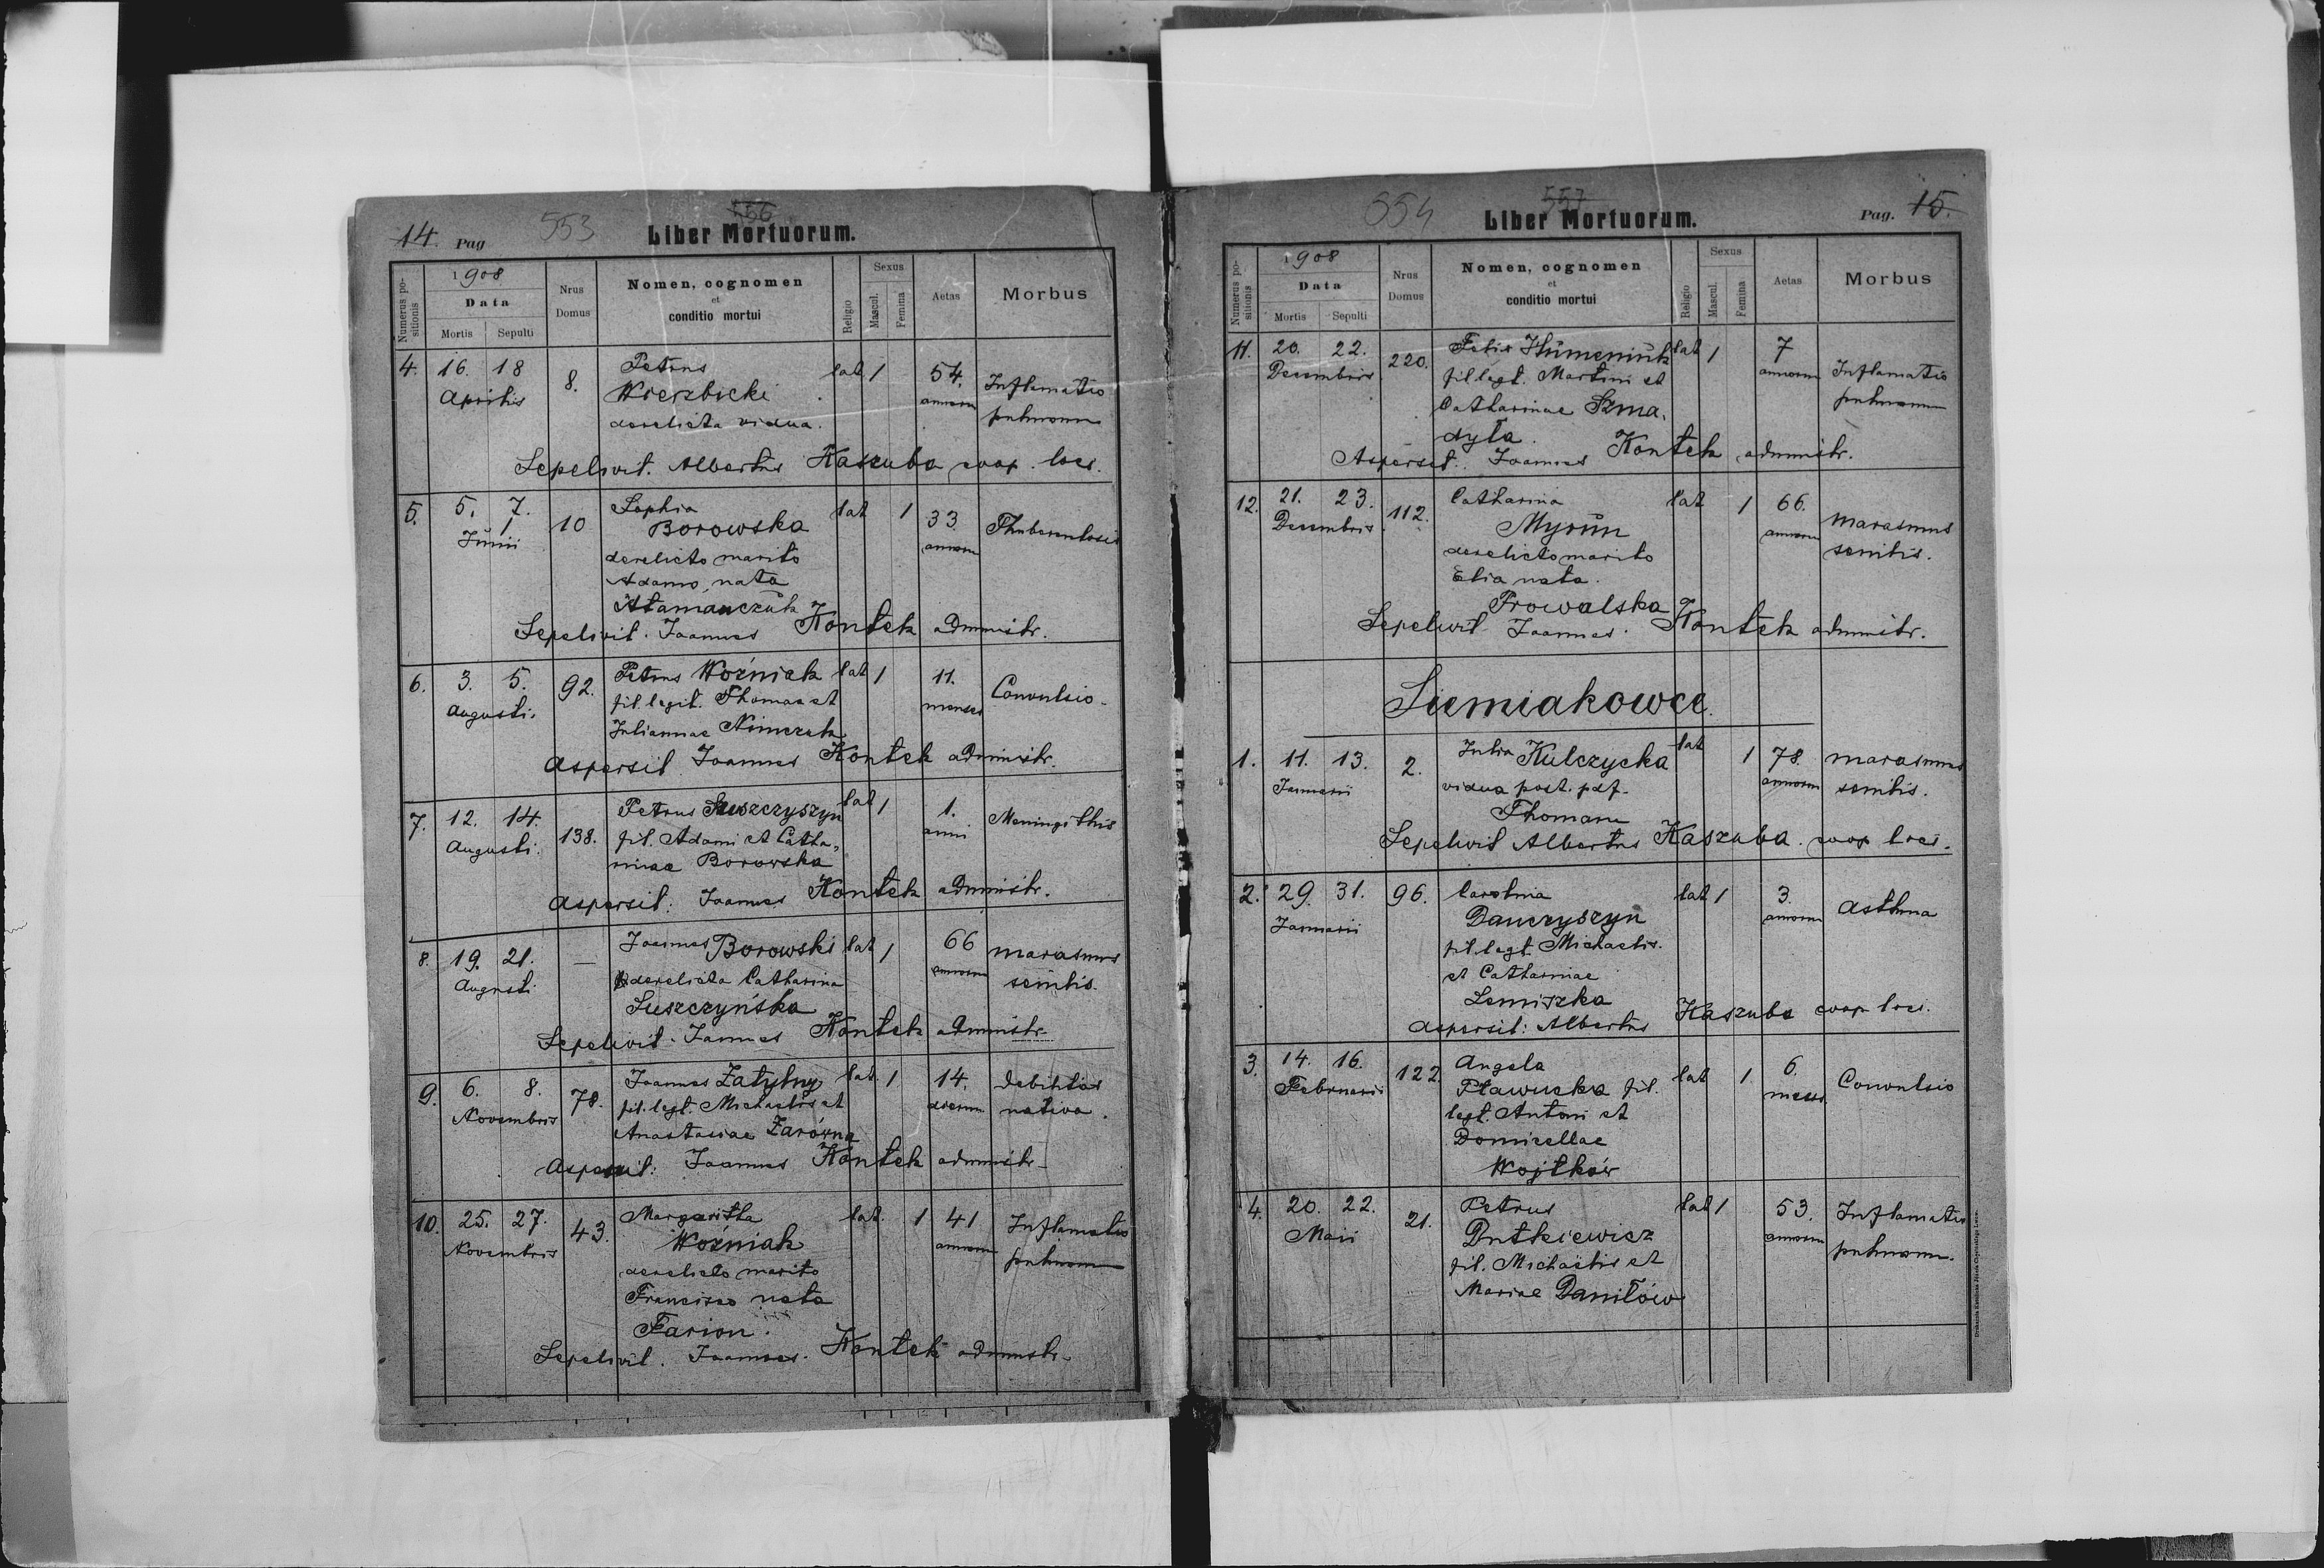 14. Pag 553 556
Liber Mortuorum.
Numerus positionis
1908
Data
Mortis Sepulti
Nrus Domus
Nomen, cognomen
et
conditio mortui
Religio
Sexus
Mascul. Femina
Aetas
Morbus
4. 16. 18 8. Petrus lat 1 54. Inflamatio
Aprilis Wierzbicki annorum pulmonum
derelicta vidua.
Sepelivit. Albertus Kaszuba coop. loci.
5. 5. 7. 10 Sophia lat 1 33 Thuberculosis
Junii Borowska annorum
derelicto marito
Adamo, nata
Atamańczuk
Sepelivit. Joannes Kontek administr.
6. 3. 5. 92. Petrus Woźniak lat 1 11. Convulsio
Augusti. fil. legit. Thomae et menses
Juliannae Nimczuk
Aspersit Joannes Kontek administr.
7. 12. 14. 138. Petrus Suszczyszyn lat 1 1. Meningithis
Augusti. fil. Adami et Catha-
anni
rinae Borowska
Aspersit: Joannes Kontek administr.
8. 19. 21. — Joannes Borowski lat 1 66 marasmus
Augusti derelicta Catharina annorum senilis.
Suszczyńska
Sepelivit. Joannes Kontek administr.
9. 6. 8. 78. Joannes Zatylny lat. 1 14. debilitas
Novembris fil. legt. Michaelis et dierum nativa.
Anastasiae Zarówna
Aspersit: Joannes Kontek administr.
10. 25. 27. 43. Margaritha lat. 1 41 Inflamatio
Novembris Woźniak annorum pulmonum
derelicto marito
Francisco nata
Farion.
Sepelivit. Joannes. Kontek administr.
554 557
Liber Mortuorum.
Pag. 15.
Numerus positionis
1908
Data
Mortis Sepulti
Nrus Domus
Nomen, cognomen
et
conditio mortui
Religio
Sexus
Mascul. Femina
Aetas
Morbus
11. 20. 22. 220. Felix Humeniuk lat 1 7 Inflamatio
Decembris fil legt. Martini et annorum pulmonum
Catharinae Szma-
dyła.
Aspersit. Joannes Kontek administr.
12. 21. 23. 112. Catharina lat 1 66. marasmus
Decembris Myrun annorum senilis.
derelicto marito
Elia nata.
Prowalska
Sepelivit Joannes. Kontek administr.
Siemiakowce.
1. 11. 13. 2. Julia Kulczycka lat 1 78. marasmus
Januarii vidua post. pdf. annorum senilis.
Thomam
Sepelivit Albertus Kaszuba. coop loci.
2. 29. 31. 96. Carolina lat 1 3. Asthma
Januarii Dauczyszyn annorum
fil legt. Michaelis.
et Catharinae
Lemiszka
Aspersit: Albertus Kaszuba coop loci.
3. 14. 16. 122 Angela lat 1. 6. Convulsio
Februarii Pławucka fil. mens.
legt. Antoni et
Domicellae
Wojtków
4. 20. 22. 21. Petrus lat 1 53. Inflamatio
Maii Dutkiewicz annorum pulmonum.
fil. Michaëlis et
Mariae Daniłów